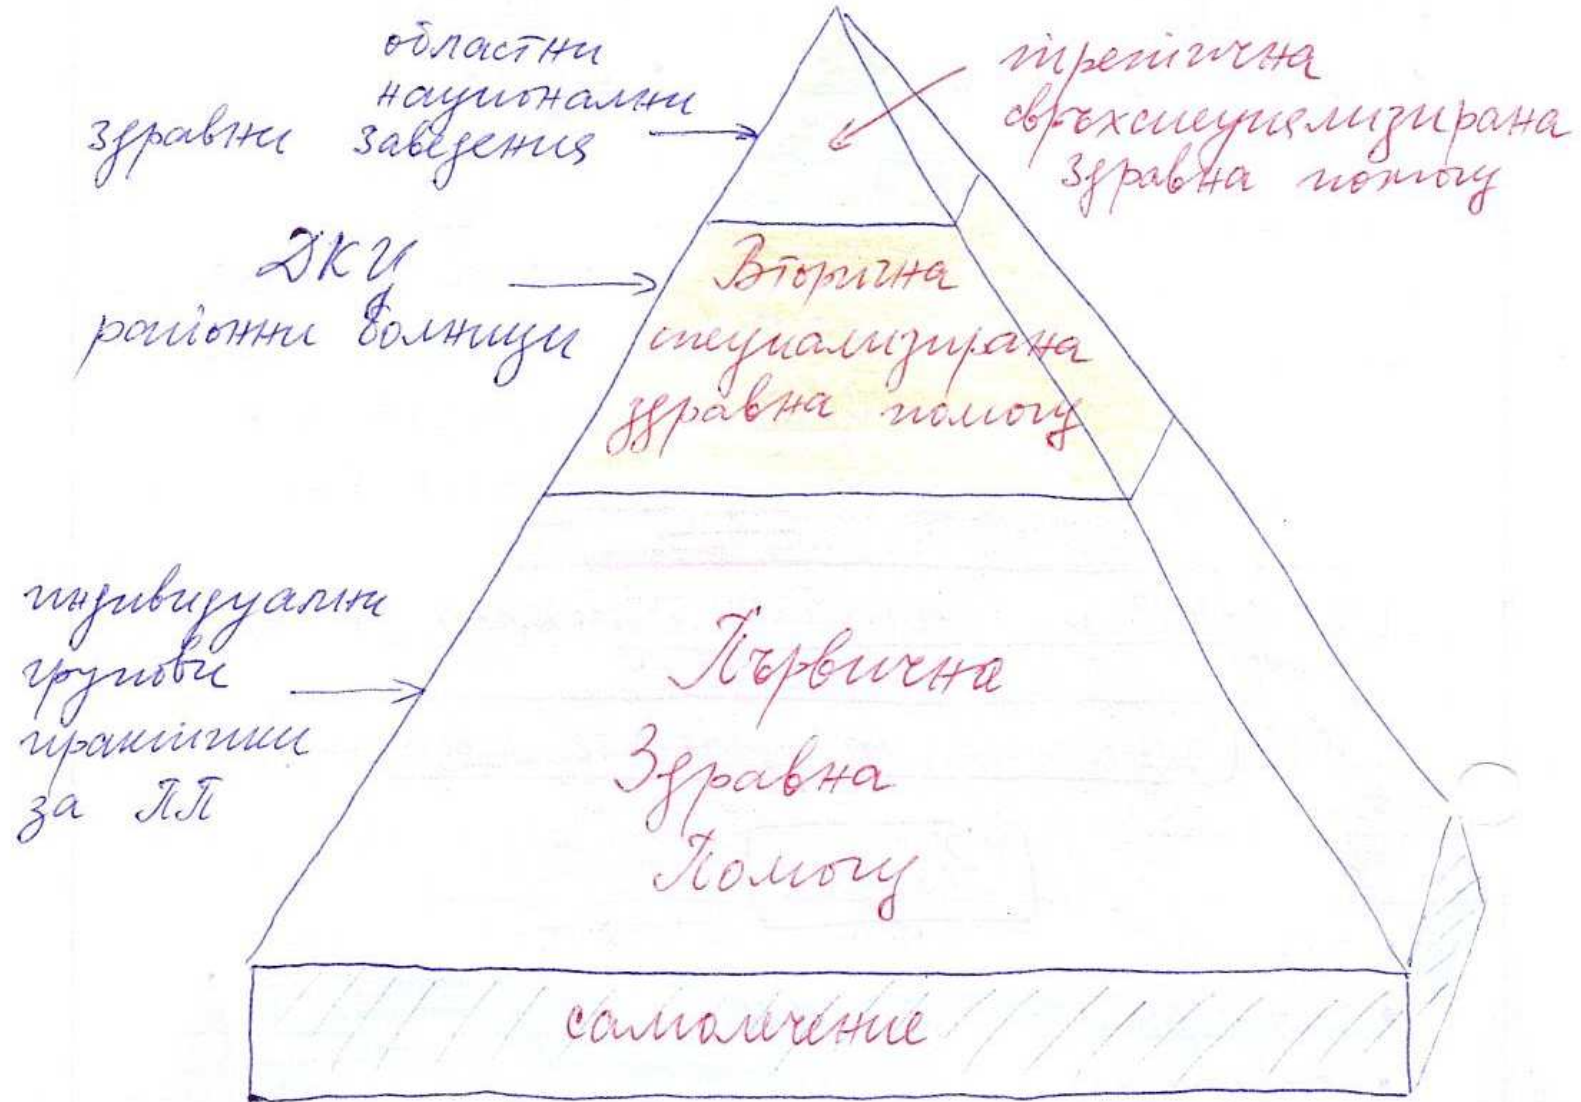 областни
национални
здравни заведения
третична
свръхспециализирана
здравна помощ
ДКЦ
районни болници
Вторична
специализирана
здравна помощ
индивидуални
групови
практики
за ПП
Първична
Здравна
Помощ
самолечение